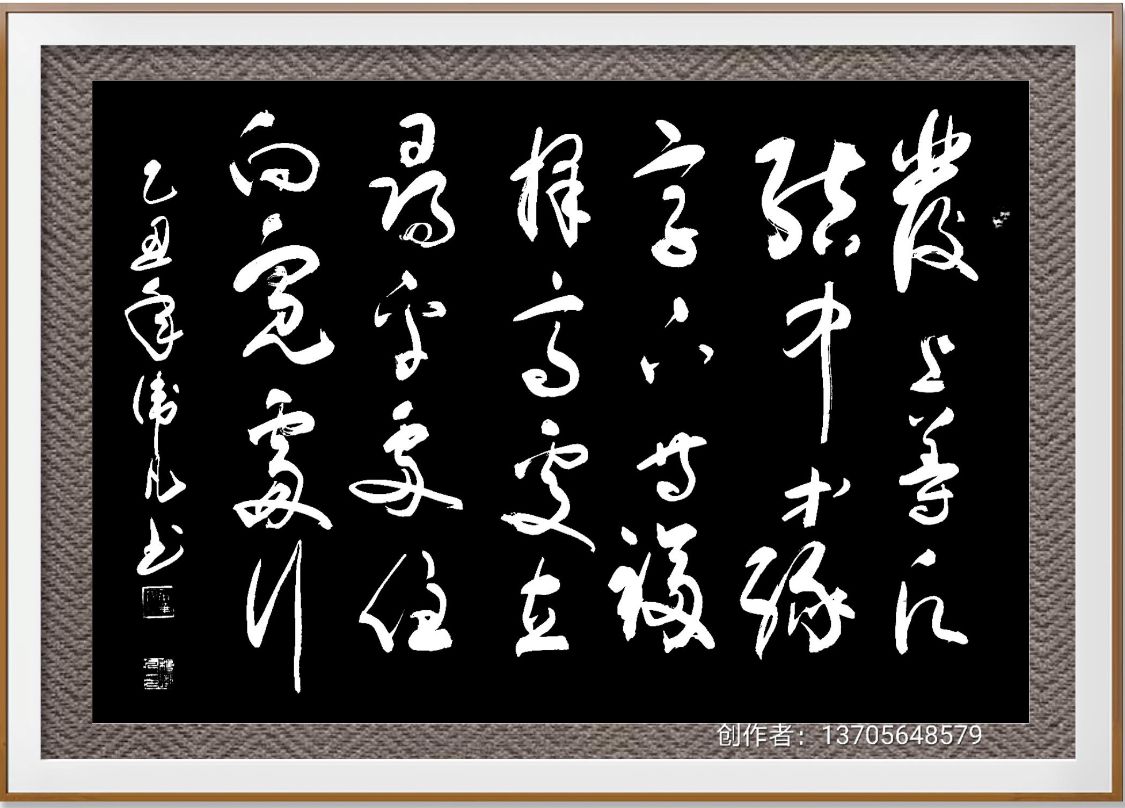 發上等願
結中等緣
享下等福
擇高處立
尋平處住
向寬處行
乙丑年衛凡书
创作者：13705648579